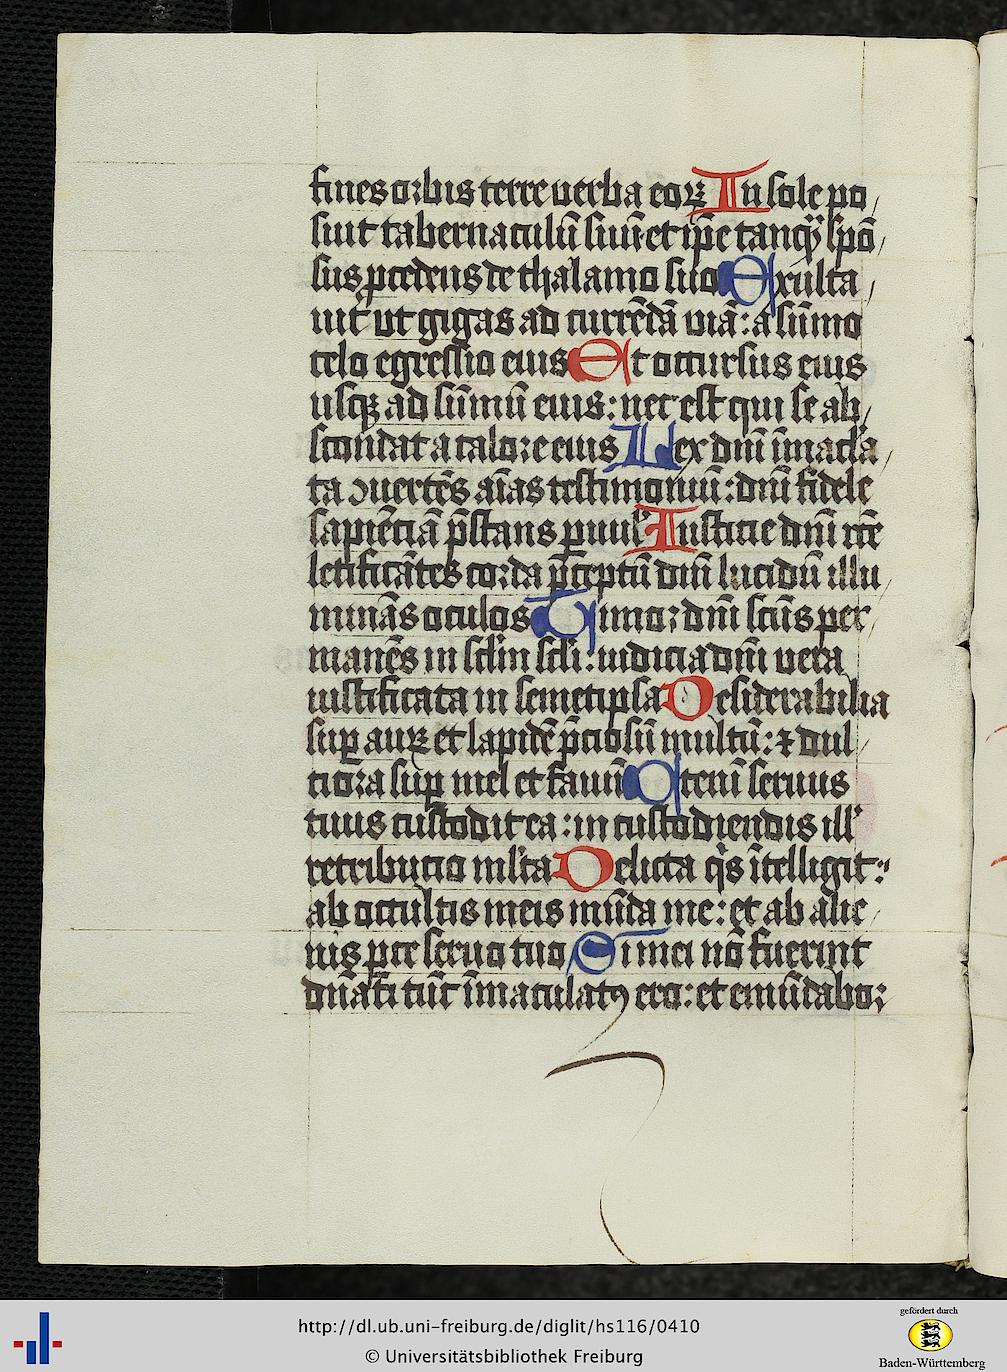 fines orbis terre verba eoꝝ In sole po/
suit tabernaculū suū: et ip̄e tanqͣȝ spō/
sus ꝓcedens de thalamo suo Exulta/
uit ut gigas ad currēdā viā: a sūmo
celo egressio eius Et occursus eius
usqꝫ ad sūmū eius: nec est qui se ab/
scondat a calore eius Lex dn̄i īmacl̓a/
ta ꝯuertēs aīas testimoniū: dn̄i fidele
sapiēciā p̄stans ꝑuul̓ Iusticie dn̄i rc̄e
letificātes corda p̄ceptū dn̄i lucidū illu/
minās oculos Timor dn̄i scūs per/
manēs in scl̓m scl̓i: iudicia dn̄i vera
iustificata in semetipsa Desiderabilia
suꝑ auꝝ et lapidē p̄ciosū multū: ⁊ dul/
ciora suꝑ mel et fauū Etenī seruus
tuus custodit ea: in custodiendis ill̓
retribucio ml̓ta Delicta qͥs ītelligit:
ab occultis meis mūda me: et ab alie/
nis ꝑce seruo tuo Si mei nō fuerint
dn̄ati tūc īmaculatꝰ ero: et emūdabor
http://dl.ub.uni-freiburg.de/diglit/hs116/0410
© Universitätsbibliothek Freiburg
gefördert durch
Baden-Württemberg